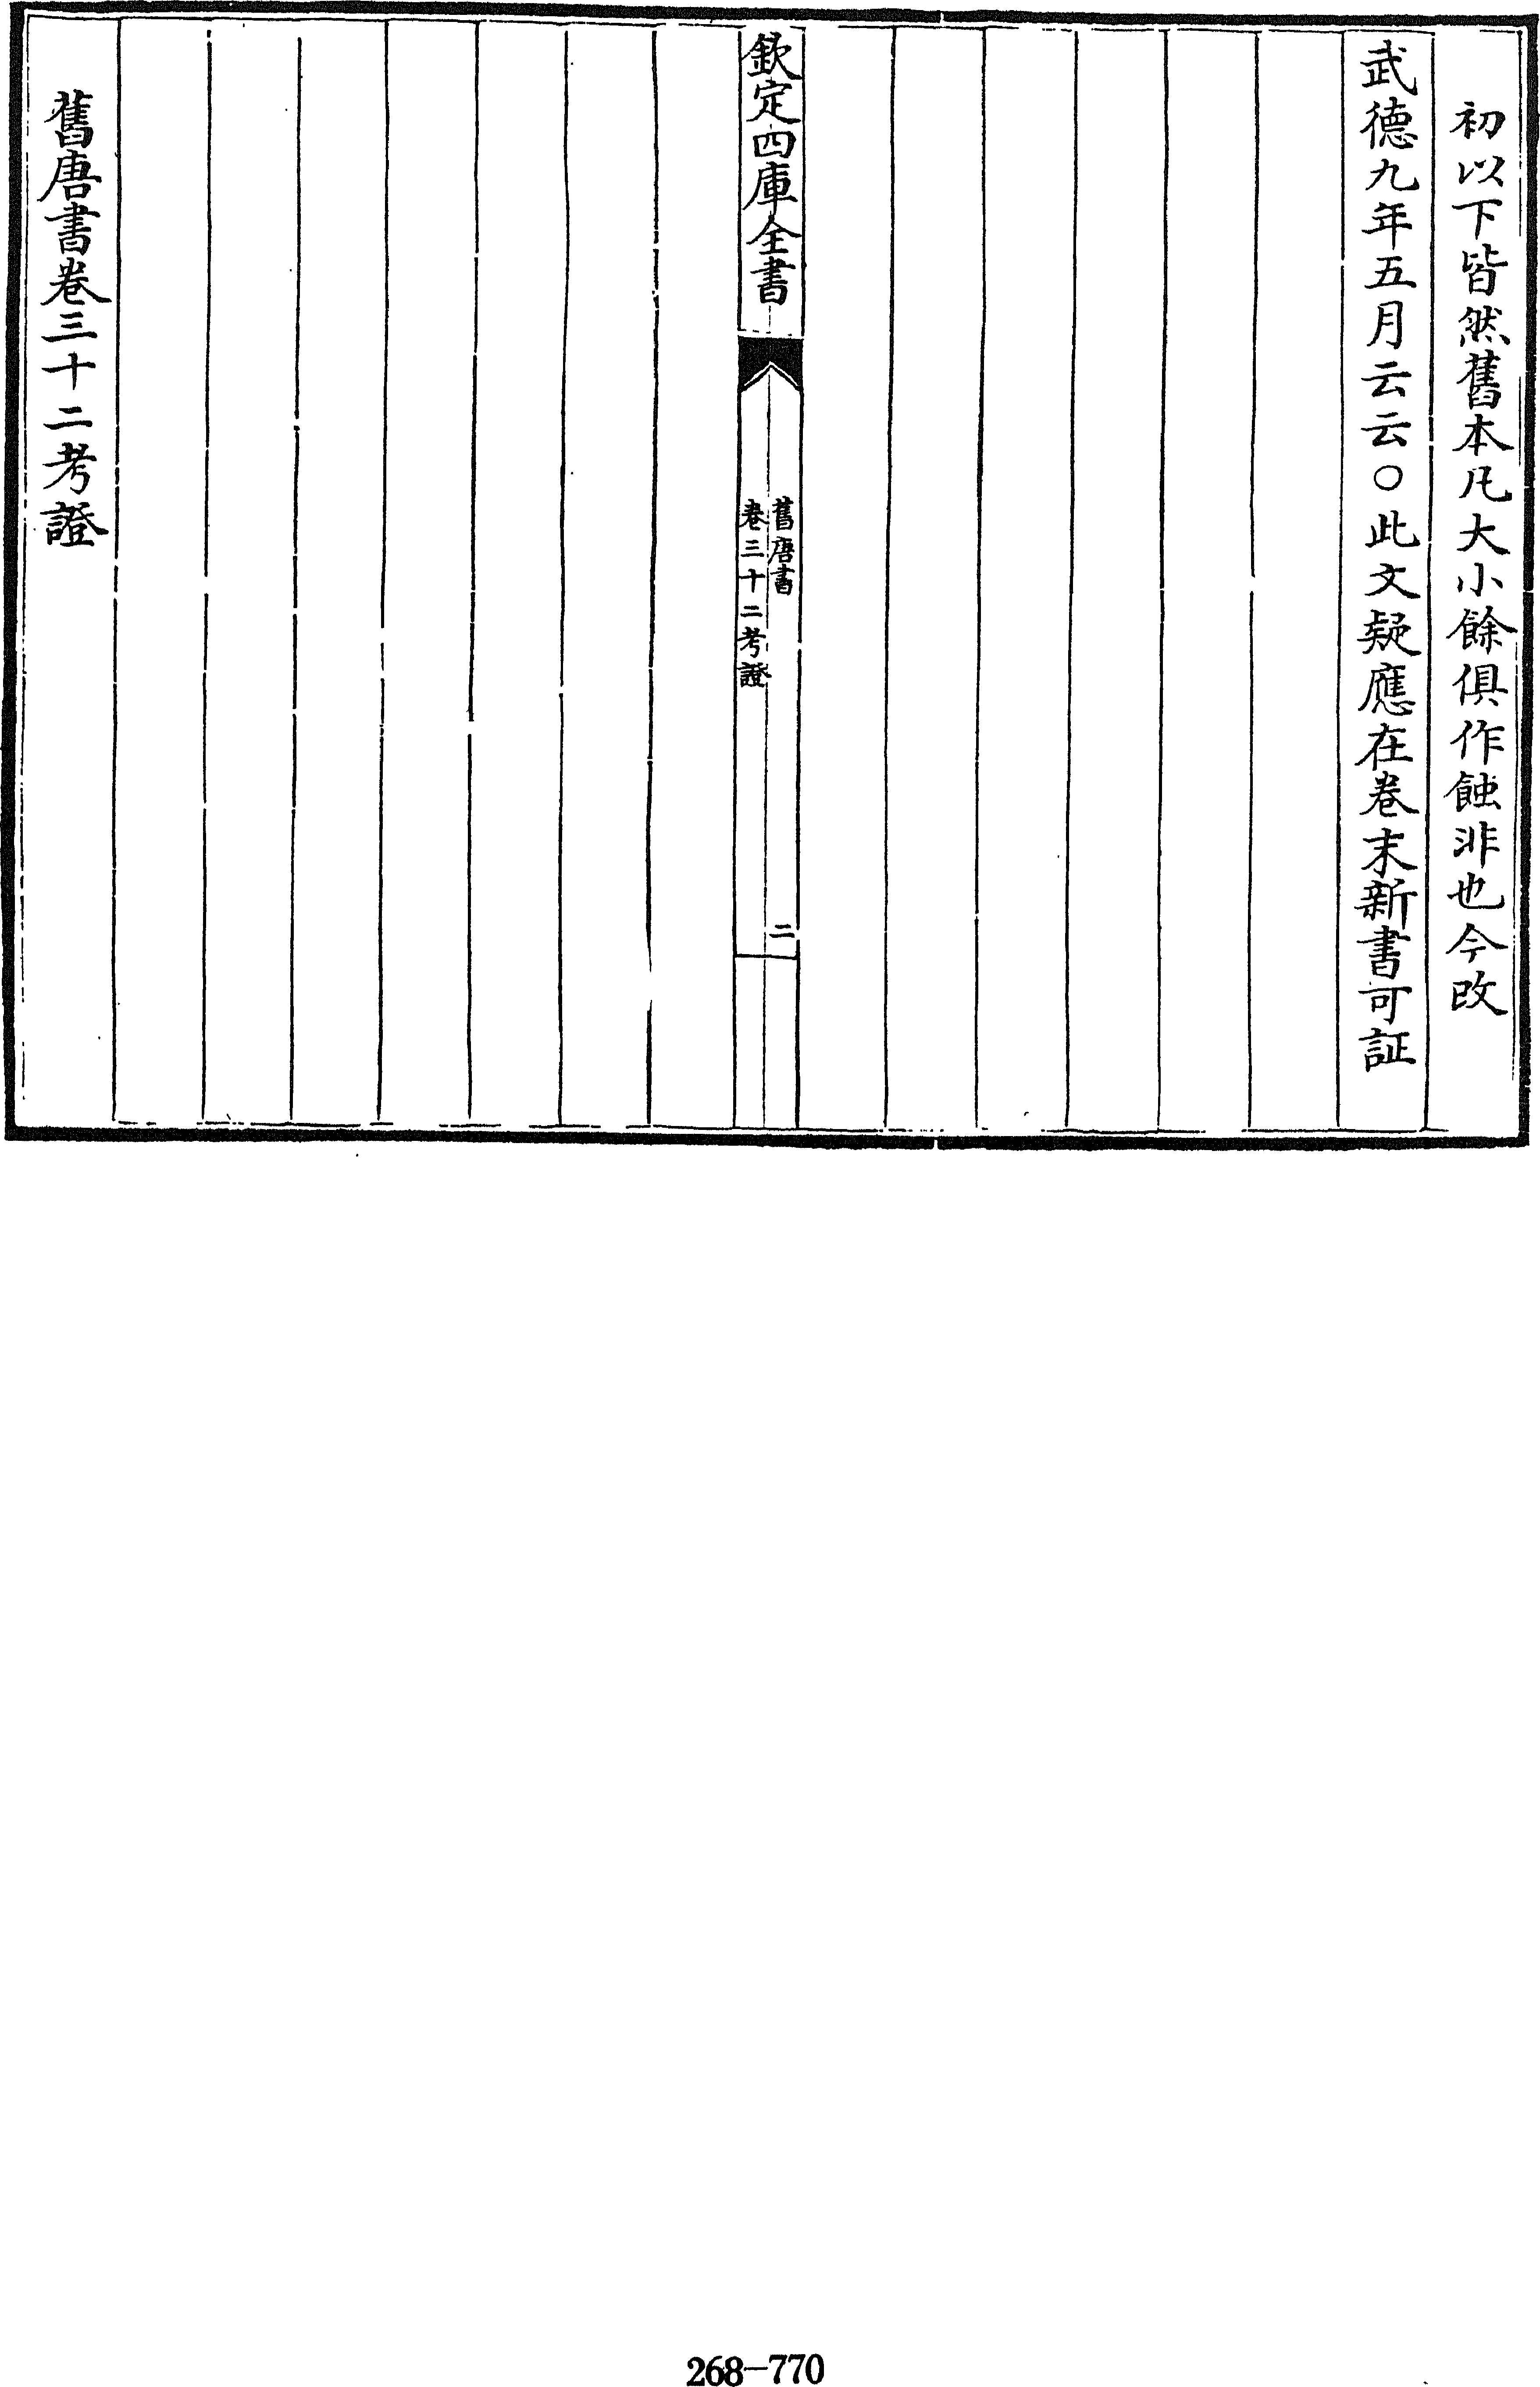 初以下皆然舊本凡大小餘俱作蝕非也今改
武德九年五月云云○此文疑應在卷末新書可証
欽定四庫全書
舊唐書
卷三十二考證
二
舊唐書卷三十二考證
268-770